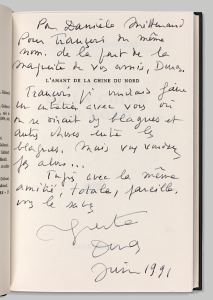 Pour Danièle Mitterrand
Pour François du même
nom. de la part de la
marguerite de vos amis, Duras.
L'AMANT DE LA CHINE DU NORD
François je voudrais faire
un entretien avec vous où
on se dirait des blagues et
autres choses entre les
blagues. Mais vous voudrez
pas alors...
Tapis avec la même
amitié, totale, pareille,
vous le savez
Duras
Juin 1991